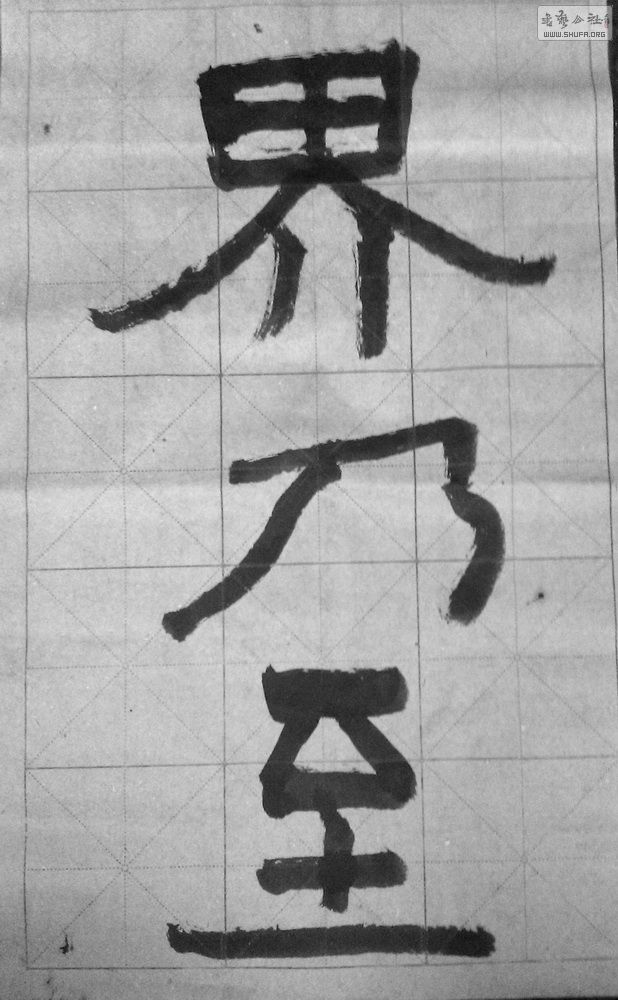 界乃至
书艺公社
WWW.SHUFA.ORG